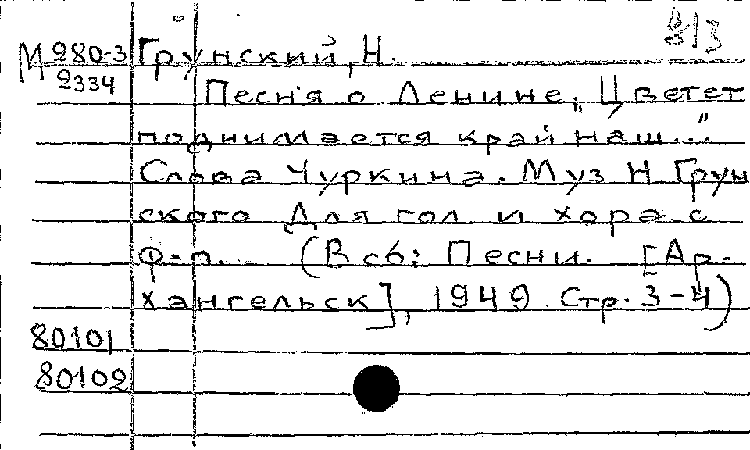 813
М 280-3 Грунский, Н.
2334 Песня о Ленине „Цветет
поднимается край наш..."
Слова Чуркина. Муз Н Грун
ского Для гол и хора с
ф-п. (В сб: Песни. [Ар-
хангельск], 1949 Стр. 3-4)
80101
80102